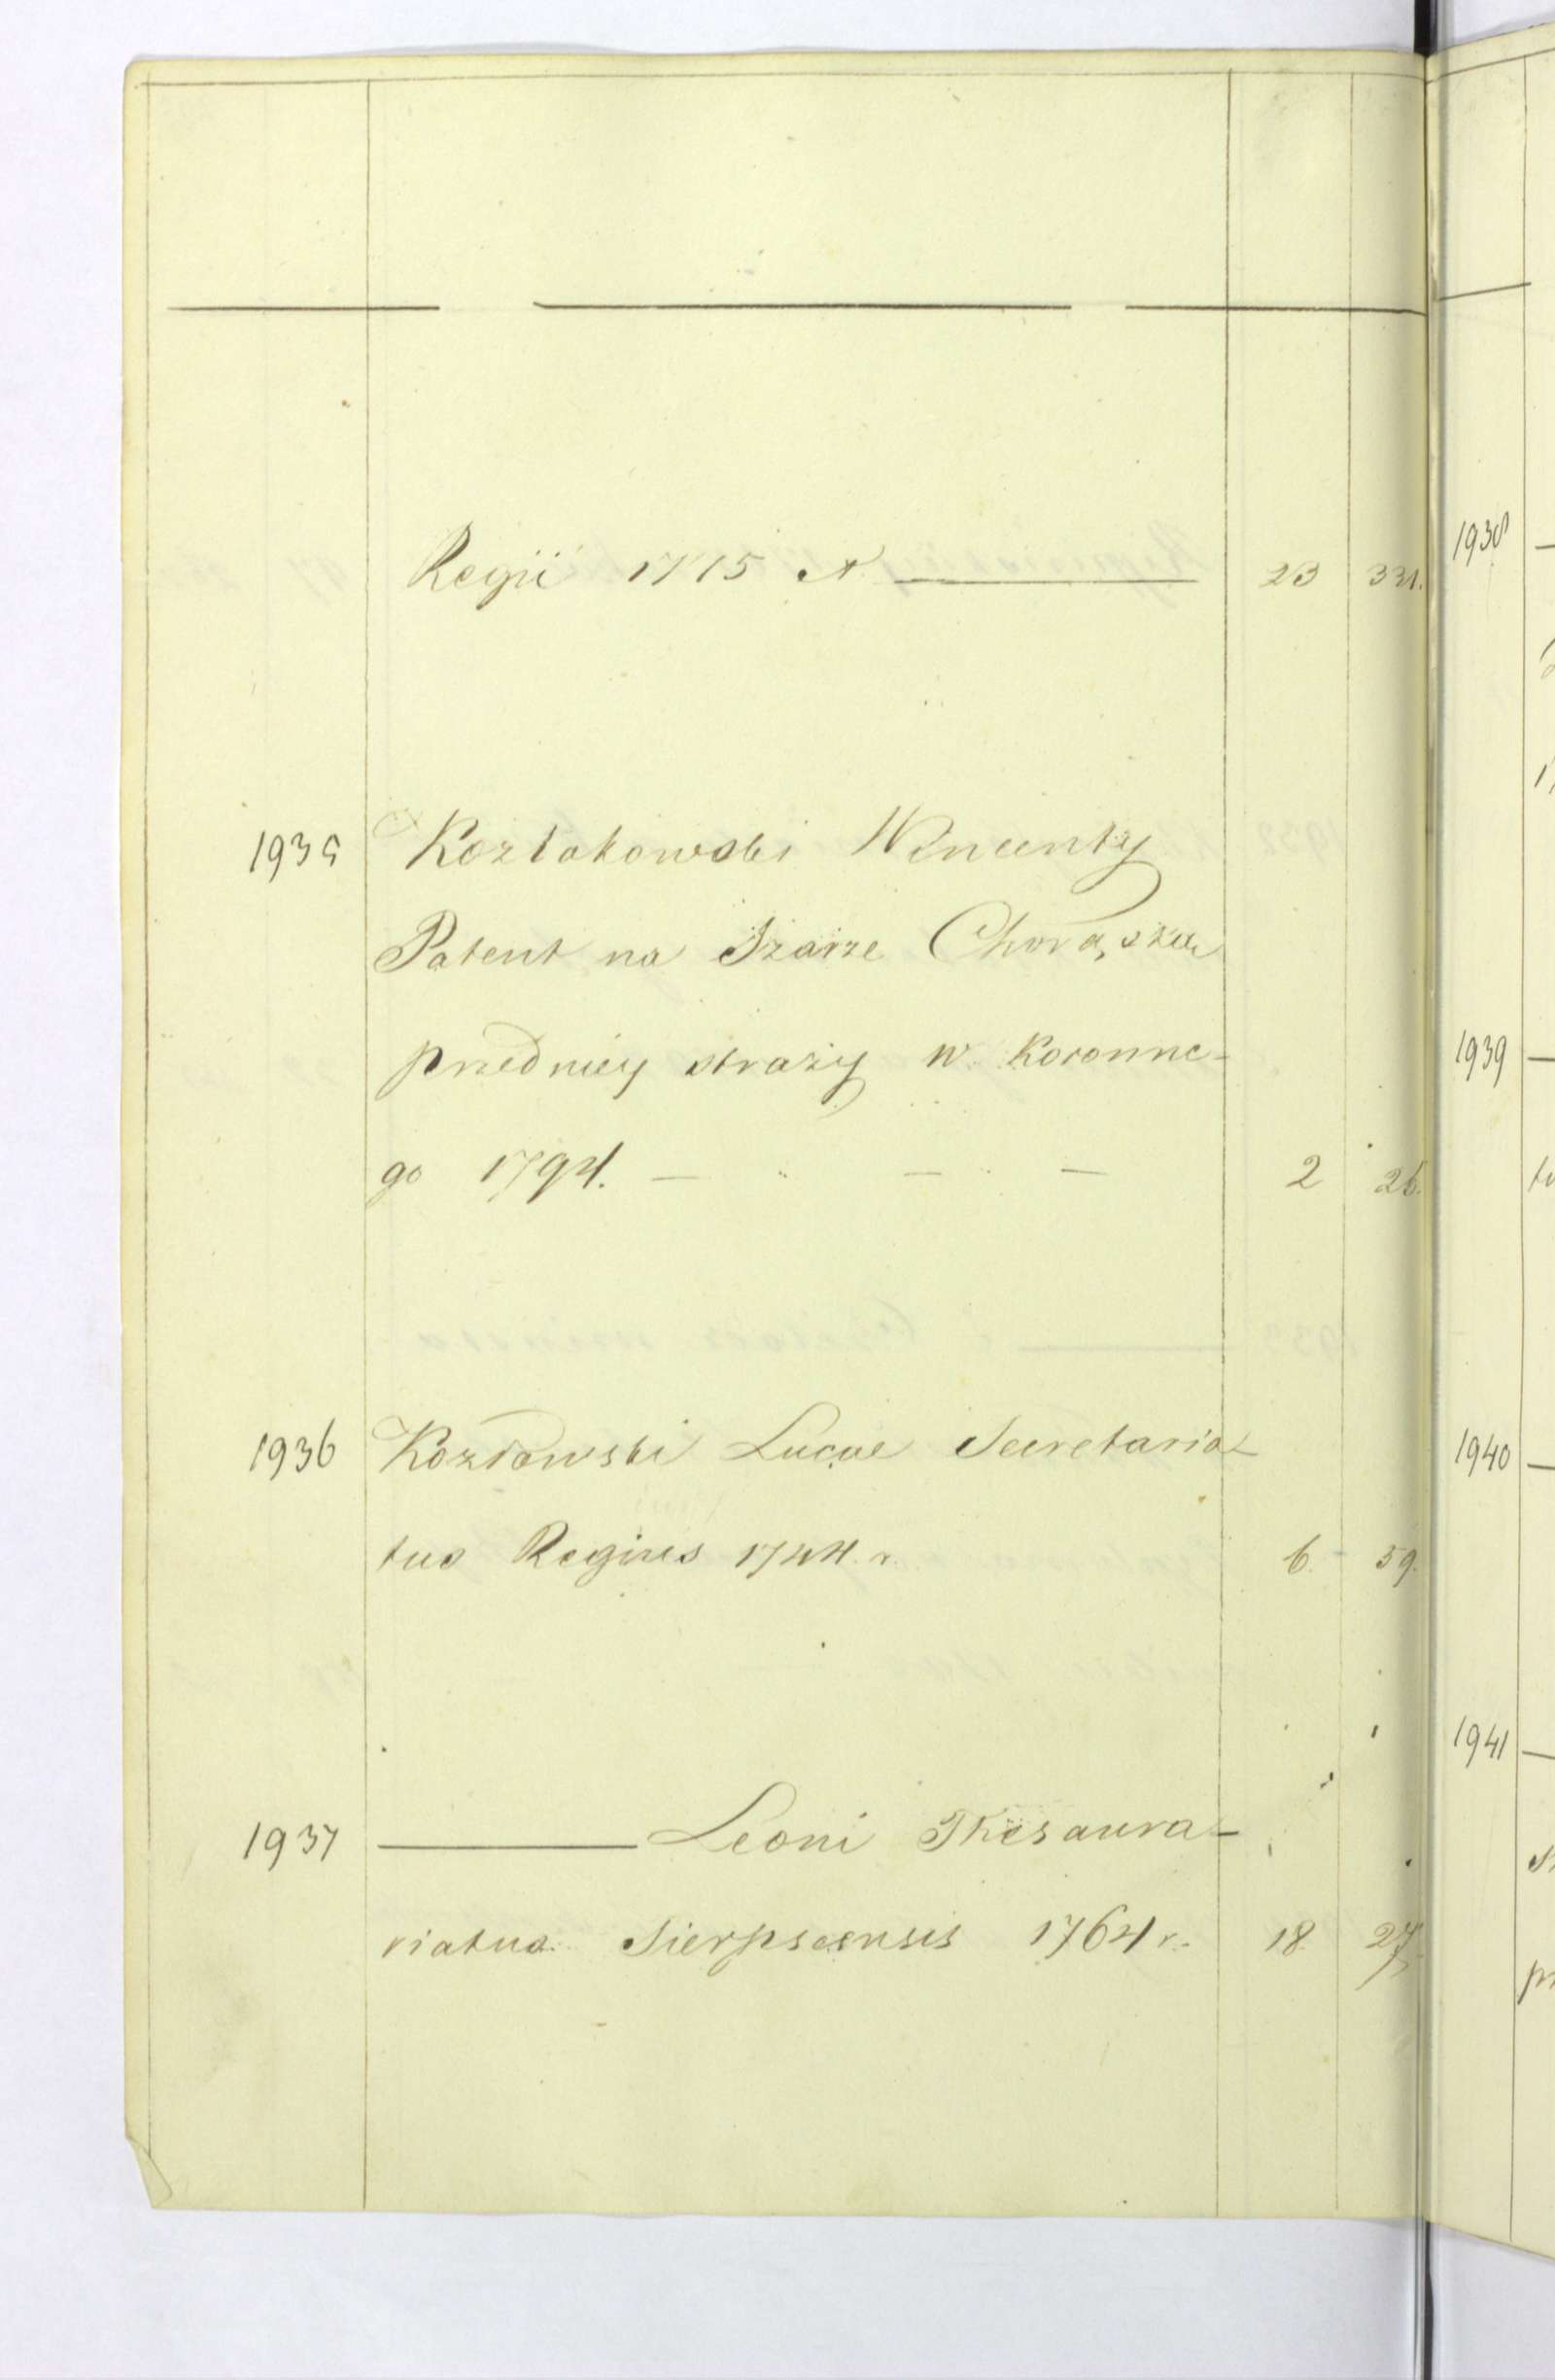 Regii 1775 r. 23 331.
1935 Kozłakowski Wincenty
Patent na Szarze Chorążeu
przedniey straży W. Koronne-
go 1794. — — — 2 26.
1936 Kozłowski Lucae Secretaria-
tus Regius 1744 r. 6. 59.
1937 ——— Leoni Thesaura-
riatus Sierpscensis 1764 r. 18 27
1938
1939
1940
1941